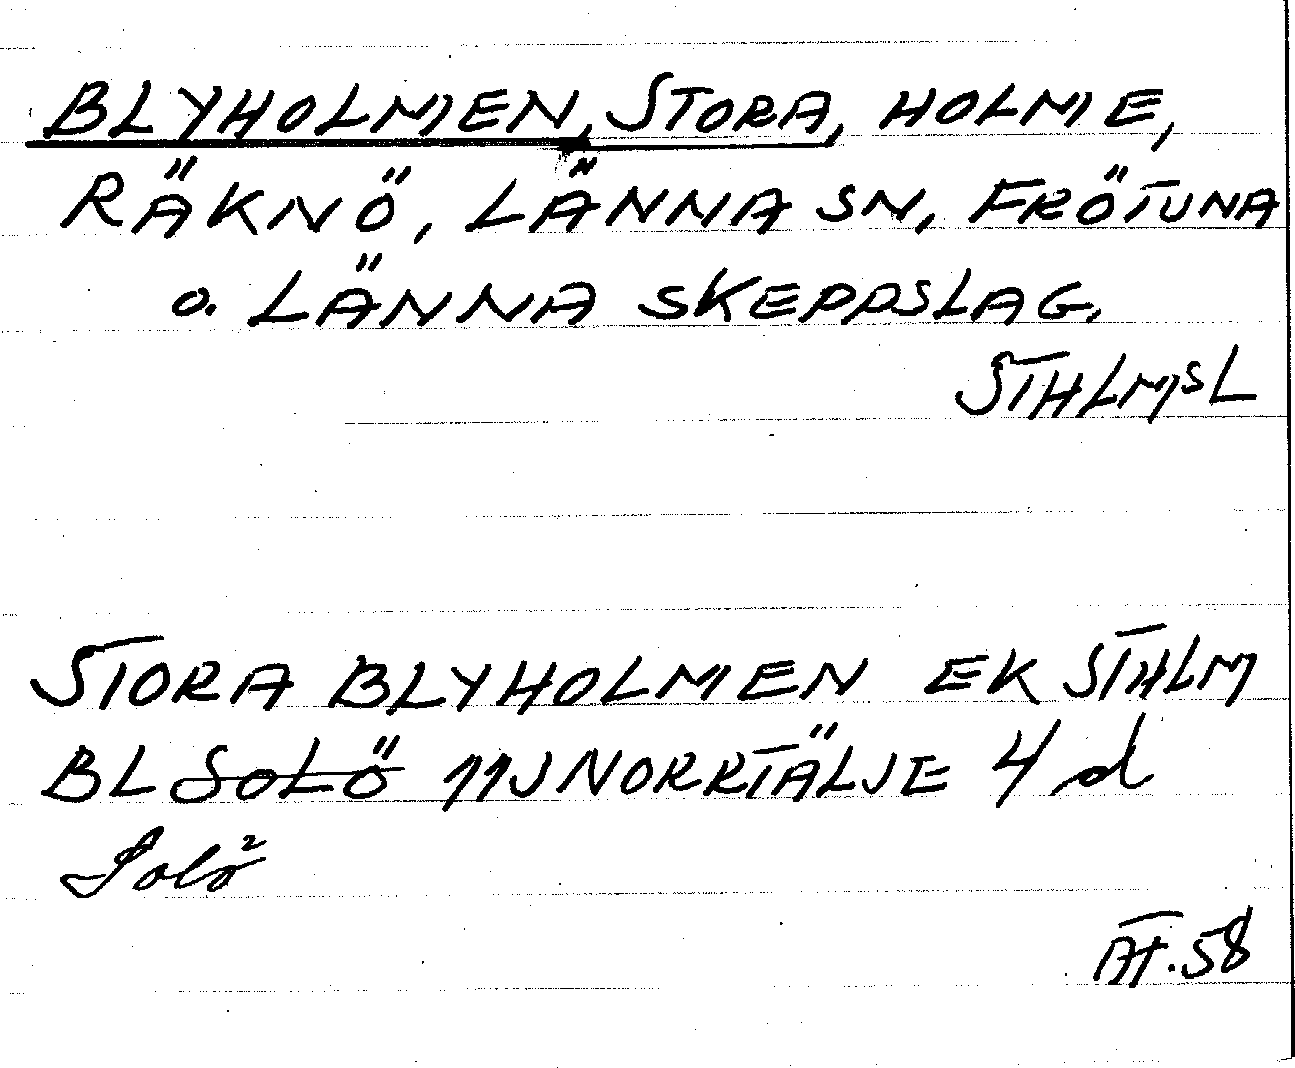 BLYHOLMEN, STORA, HOLME,
RÄKNÖ, LÄNNA SN, FRÖTUNA
o. LÄNNA SKEPPSLAG.
STHLMSL
STORA BLYHOLMEN EK STHLM
BL SOLÖ 11J NORRTÄLJE 4 d
Solö
AT. 58